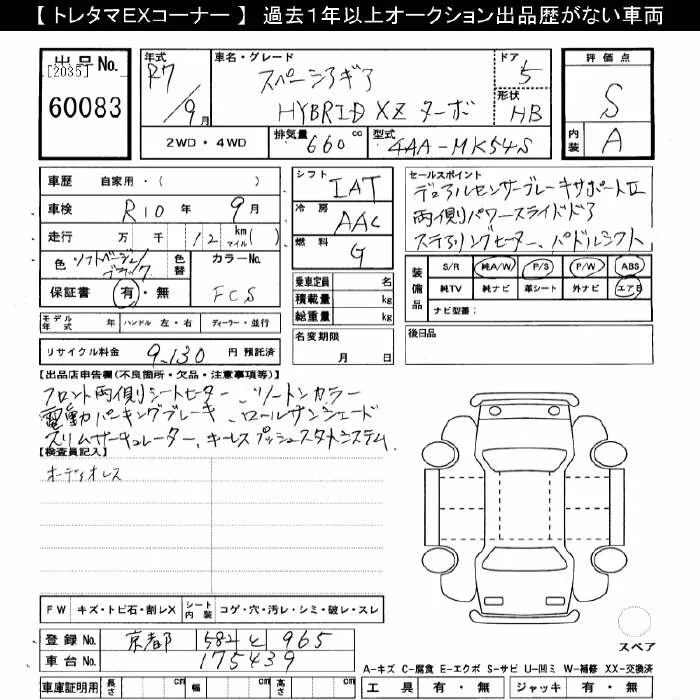 【 トレタマEXコーナー 】 過去1年以上オークション出品歴がない車両
出品No. [2035] 60083
年式 R7/9月
車名・グレード スペーシアギア HYBRID XZ ターボ
ドア 5
形状 HB
評価点 S
内装 A
2WD・4WD 排気量 660cc 型式 4AA-MK54S
車歴 自家用・( )
車検 R10年 9月
走行 万 千 12 km マイル( )
色 ソフトベージュ/ブラック 色替 カラーNo. FCS
保証書 有・無
シフト IAT
冷房 AAC
燃料 G
乗車定員 名
積載量 kg
総重量 kg
セールスポイント
デュアルセンサーブレーキサポートⅡ
両側パワースライドドア
ステアリングヒーター、パドルシフト
装備品 S/R 純A/W P/S P/W ABS
純TV 純ナビ 革シート 外ナビ エアB
ナビ型番:
モデル年式 年 ハンドル 左・右 ディーラー・並行
名変期限 月 日
後日品
リサイクル料金 9,130 円 預託済
【出品店申告欄(不良箇所・欠品・注意事項等)】
フロント両側シートヒーター、ツートンカラー
電動パーキングブレーキ、ロールサンシェード
スリムサーキュレーター、キーレスプッシュスタートシステム
【検査員記入】
オーディオレス
FW キズ・トビ石・割レX シート内装 コゲ・穴・汚レ・シミ・破レ・スレ
登録No. 京都 582 と 965
車台No. 175439
スペア
A-キズ C-腐食 E-エクボ S-サビ U-凹ミ W-補修 XX-交換済
車庫証明用 長さ cm 幅 cm 高さ cm
工具 有・無 ジャッキ 有・無